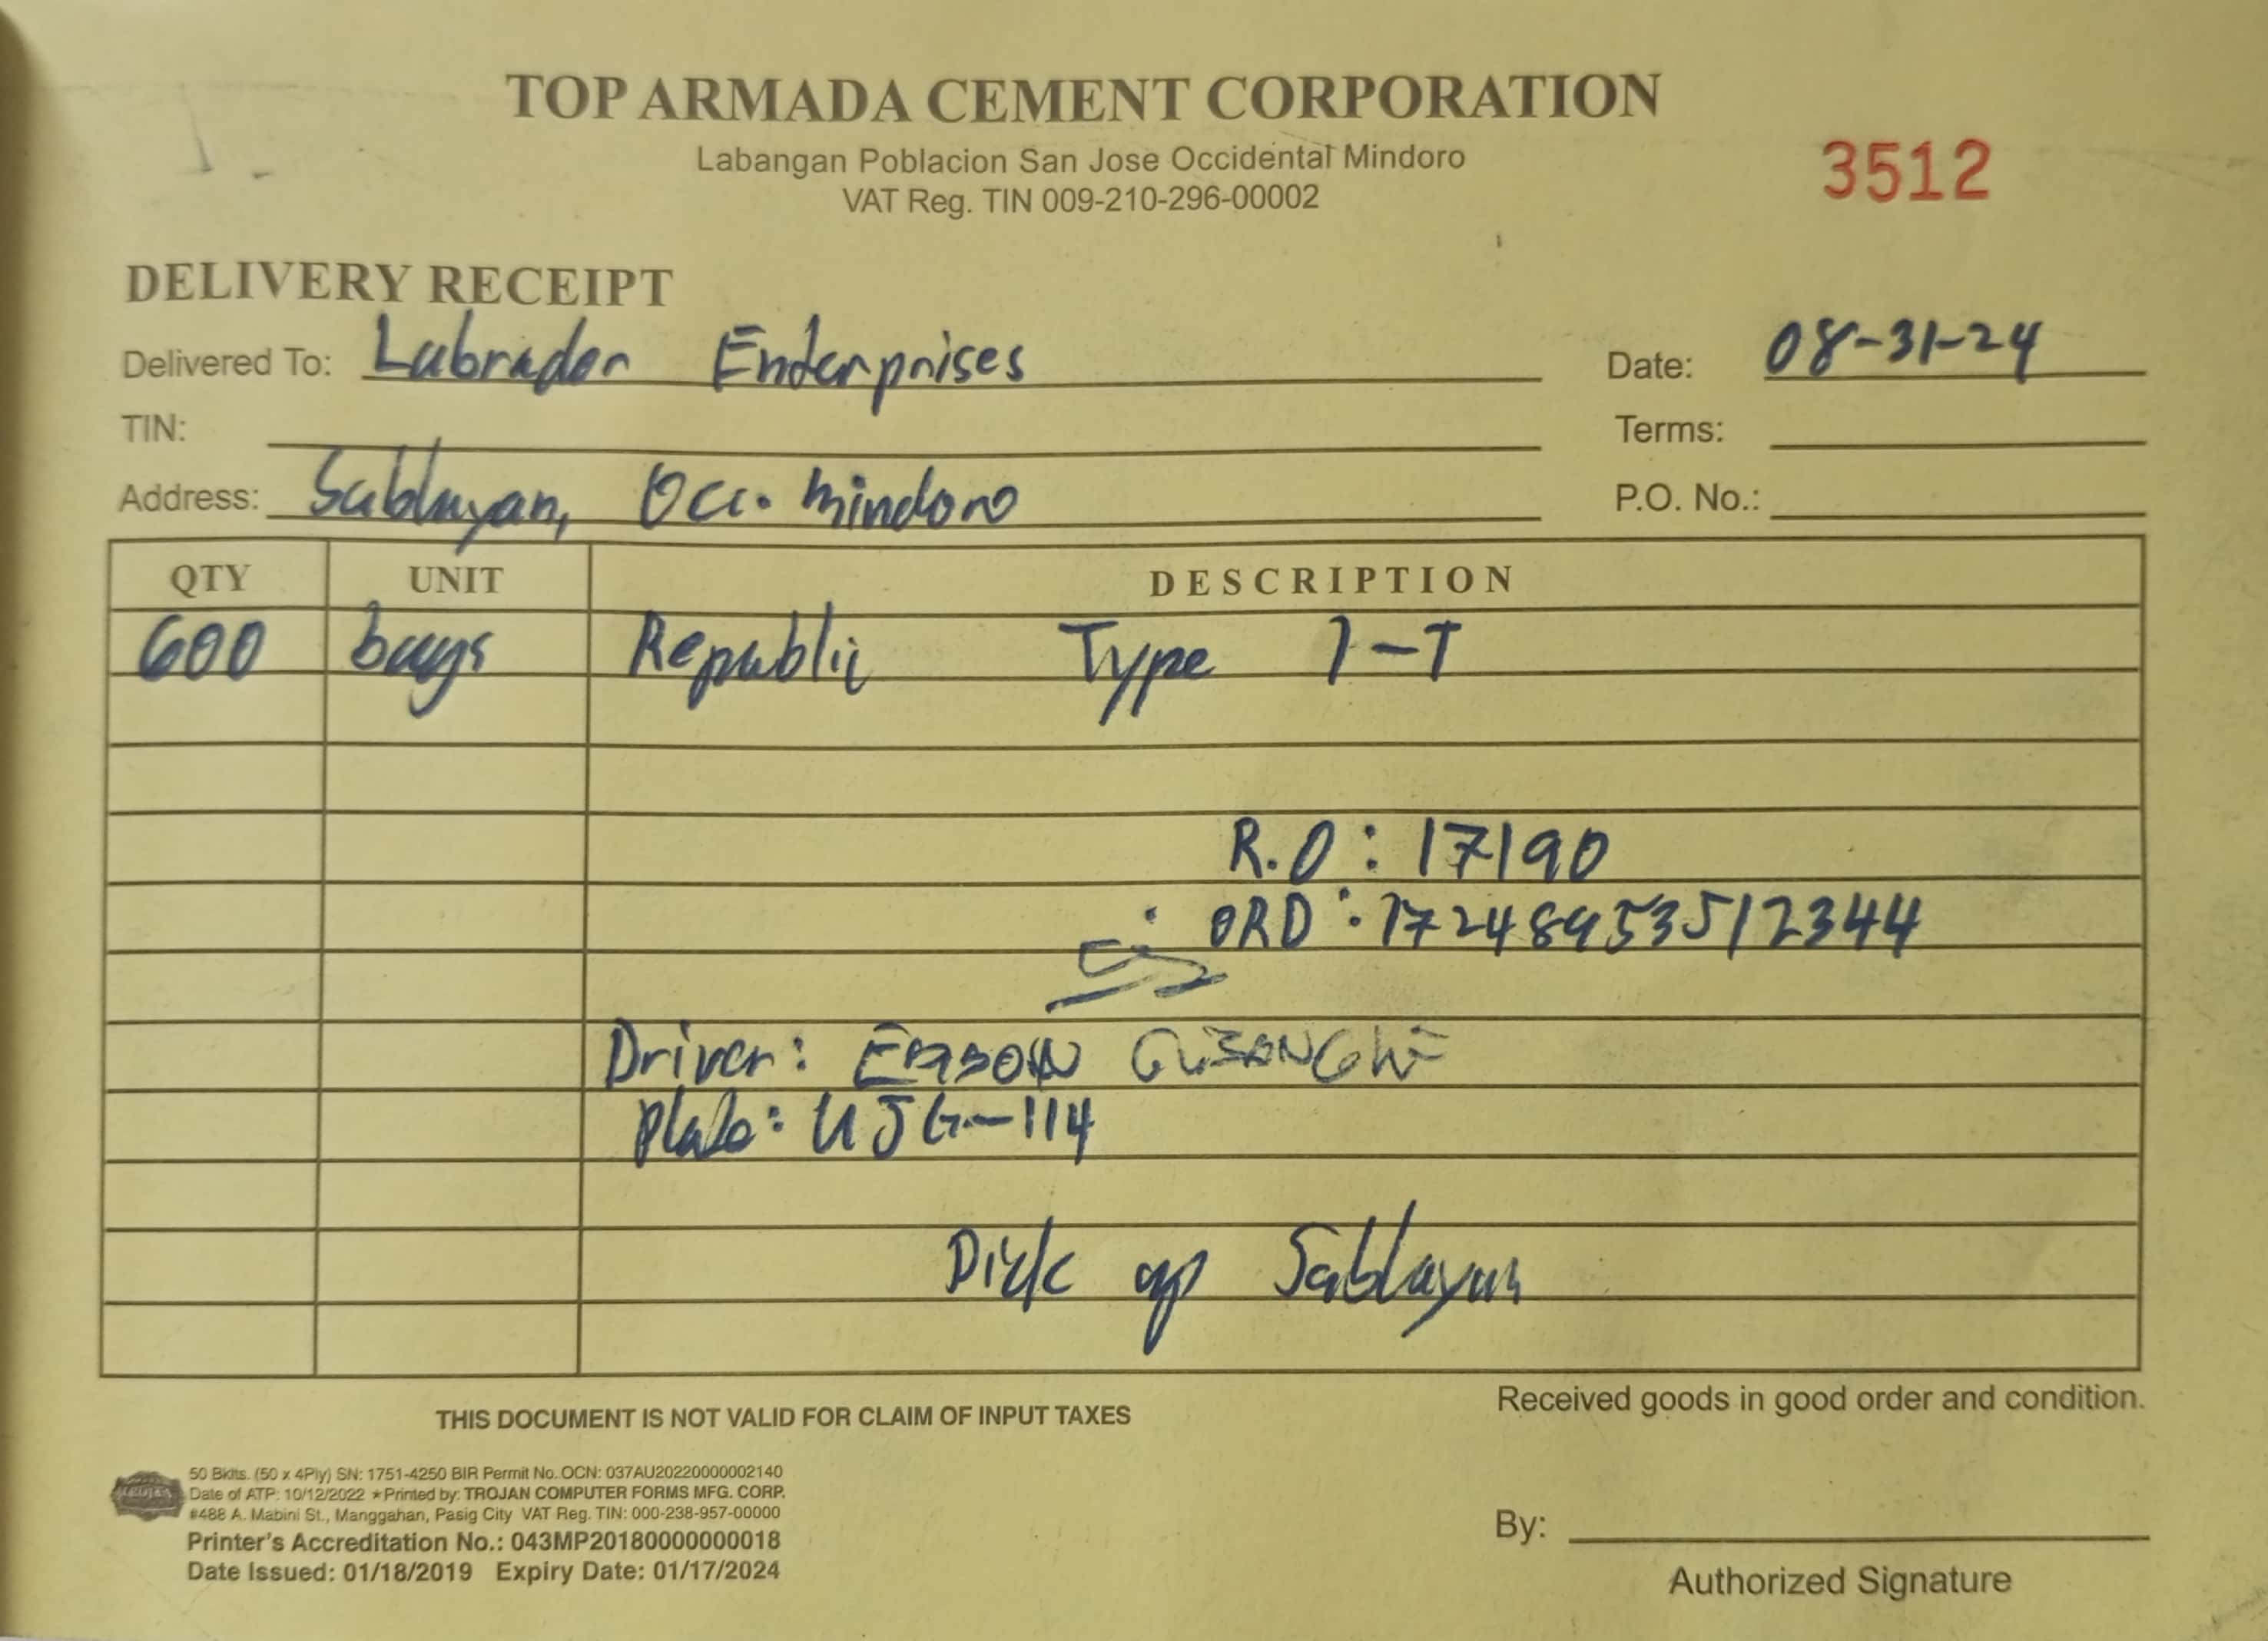 TOP ARMADA CEMENT CORPORATION
Labangan Poblacion San Jose Occidental Mindoro
VAT Reg. TIN 009-210-296-00002
3512
DELIVERY RECEIPT
Delivered To: Labrador Enterprises
Date: 08-31-24
TIN:
Terms:
Address: Sablayan, Occ. Mindoro
P.O. No.:
QTY UNIT DESCRIPTION
600 bags Republic Type 1-T
R.O: 17190
ORD: 17248953512344
Driver:
Plate: UJG-114
Pick up Sablayan
THIS DOCUMENT IS NOT VALID FOR CLAIM OF INPUT TAXES
Received goods in good order and condition.
50 Bklts. (50 x 4Ply) SN: 1751-4250 BIR Permit No. OCN: 037AU20220000002140
Date of ATP: 10/12/2022 ★Printed by: TROJAN COMPUTER FORMS MFG. CORP.
#488 A. Mabini St., Manggahan, Pasig City VAT Reg. TIN: 000-238-957-00000
Printer's Accreditation No.: 043MP20180000000018
Date Issued: 01/18/2019 Expiry Date: 01/17/2024
By:
Authorized Signature